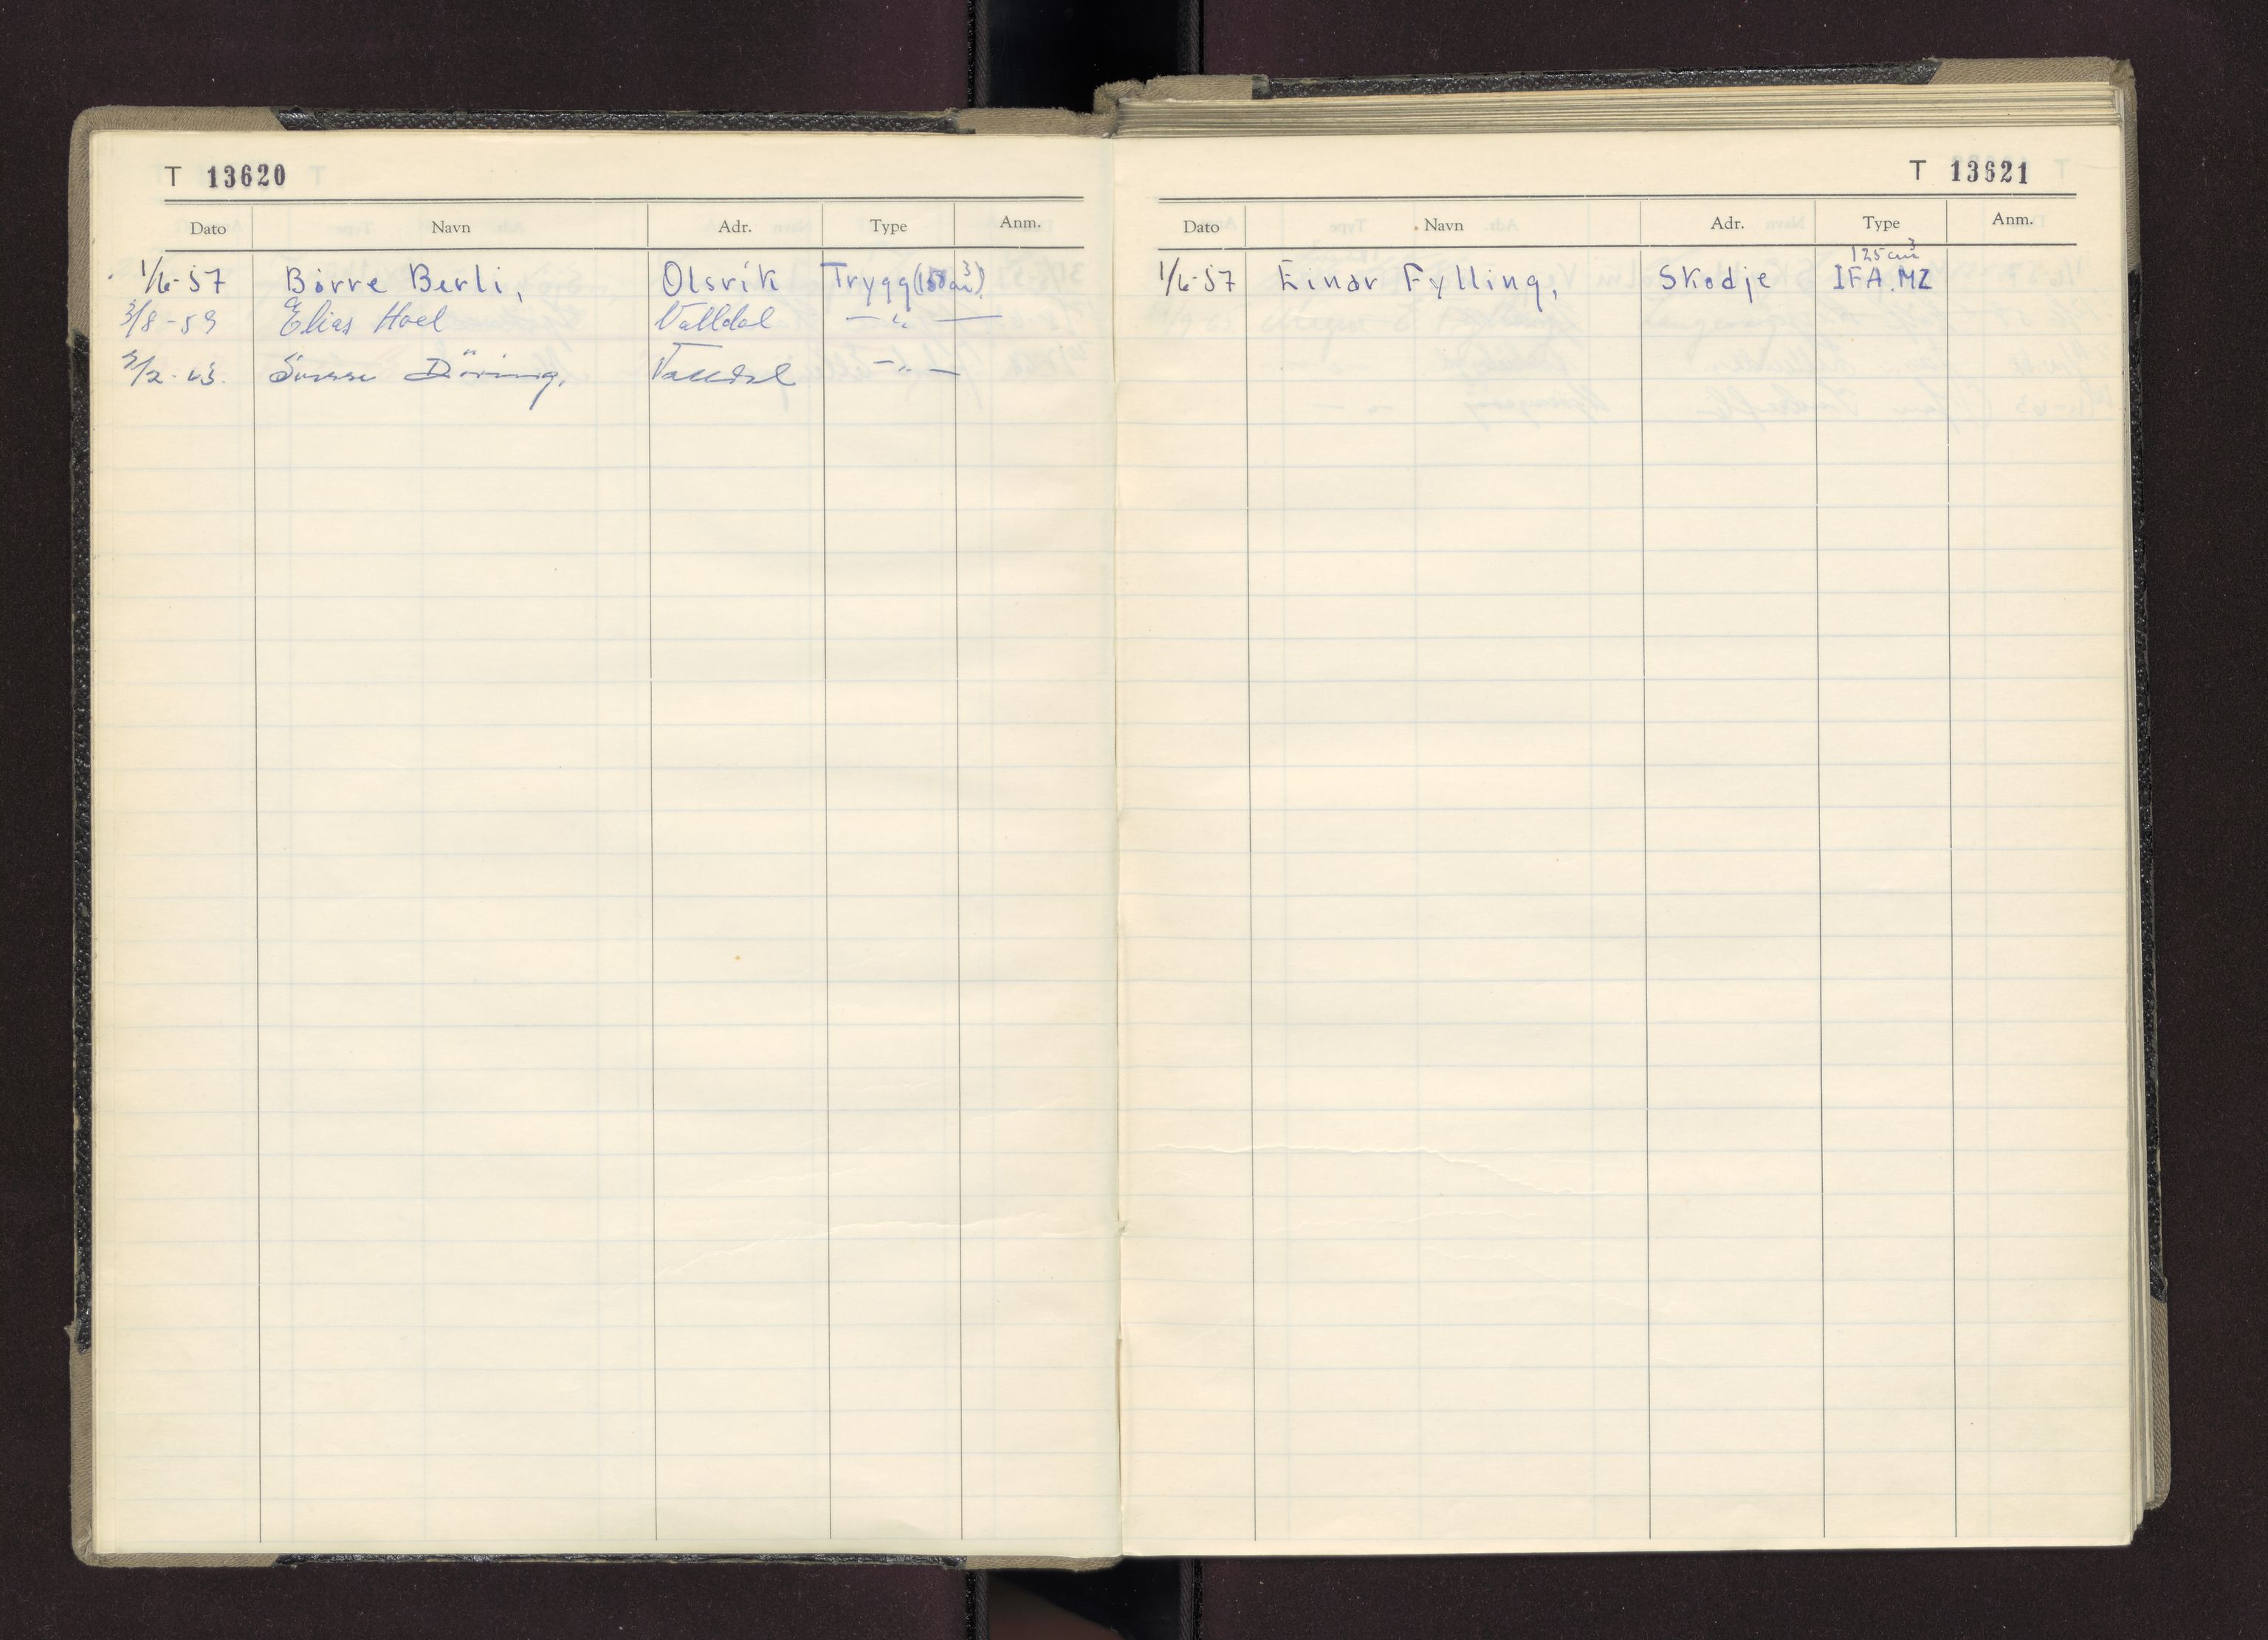 T 13620
Dato Navn Adr. Type Anm.
1/6-57 Börre Berli, Olsvik Trygg (150 cm³)
3/8-59 Elias Hoel Valldal — " —
2/2-63. Döving, Valldal — " —
T 13621
Dato Navn Adr. Type Anm.
125 cm³
1/6-57 Einar Fylling, Skodje IFA.MZ